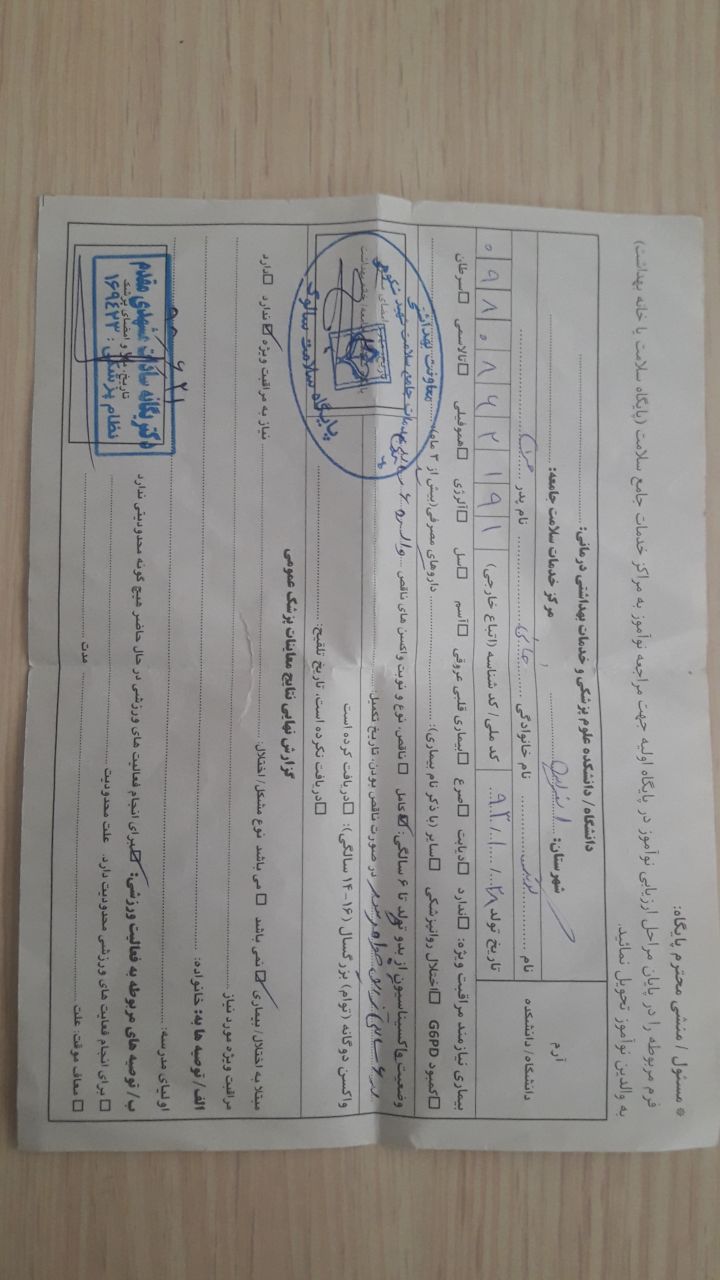 * مسئول / منشی محترم پایگاه:
فرم مربوطه را در پایان مراحل ارزیابی نوآموز در پایگاه اولیه جهت مراجعه نوآموز به مراکز خدمات جامع سلامت (پایگاه سلامت یا خانه بهداشت)
به والدین نوآموز تحویل نمائید.
آرم
دانشگاه/ دانشکده
دانشگاه/ دانشکده علوم پزشکی و خدمات بهداشتی درمانی:
شهرستان: مرکز خدمات سلامت جامعه:
نام نام خانوادگی نام پدر
تاریخ تولد ۹۳/۱/۲۸ کد ملی/ کد شناسه (اتباع خارجی)
بیماری نیازمند مراقبت ویژه: □ندارد □دیابت □صرع □بیماری قلبی عروقی □آسم □سل □آلرژی □هموفیلی □تالاسمی □سرطان
□کمبود G6PD □اختلال روانپزشکی □سایر (با ذکر نام بیماری): داروهای مصرفی(بیش از ۳ ماه):
وضعیت واکسیناسیون از بدو تولد تا ۶ سالگی: ☑کامل □ ناقص، نوع و نوبت واکسن های ناقص
در صورت ناقص بودن، تاریخ تکمیل
واکسن دوگانه (توام) بزرگسال (۱۶-۱۴ سالگی): □دریافت کرده است
□دریافت نکرده است، تاریخ تلقیح:
معاونت بهداشتی
پایگاه سلامت سالوک
گزارش نهایی نتایج معاینات پزشک عمومی
مبتلا به اختلال/ بیماری ☑ نمی باشد □ می باشد نوع مشکل/ اختلال نیاز به مراقبت ویژه ☑ ندارد □دارد
مراقبت ویژه مورد نیاز
الف/ توصیه ها به: خانواده:
اولیای مدرسه:
ب/ توصیه های مربوطه به فعالیت ورزشی: ☑برای انجام فعالیت های ورزشی در حال حاضر هیچ گونه محدودیتی ندارد
□ برای انجام فعالیت های ورزشی محدودیت دارد. علت محدودیت
□ معاف موقت: علت مدت
تاریخ، مهر و امضای پزشک
نظام پزشکی: ۱۶۹۴۲۳